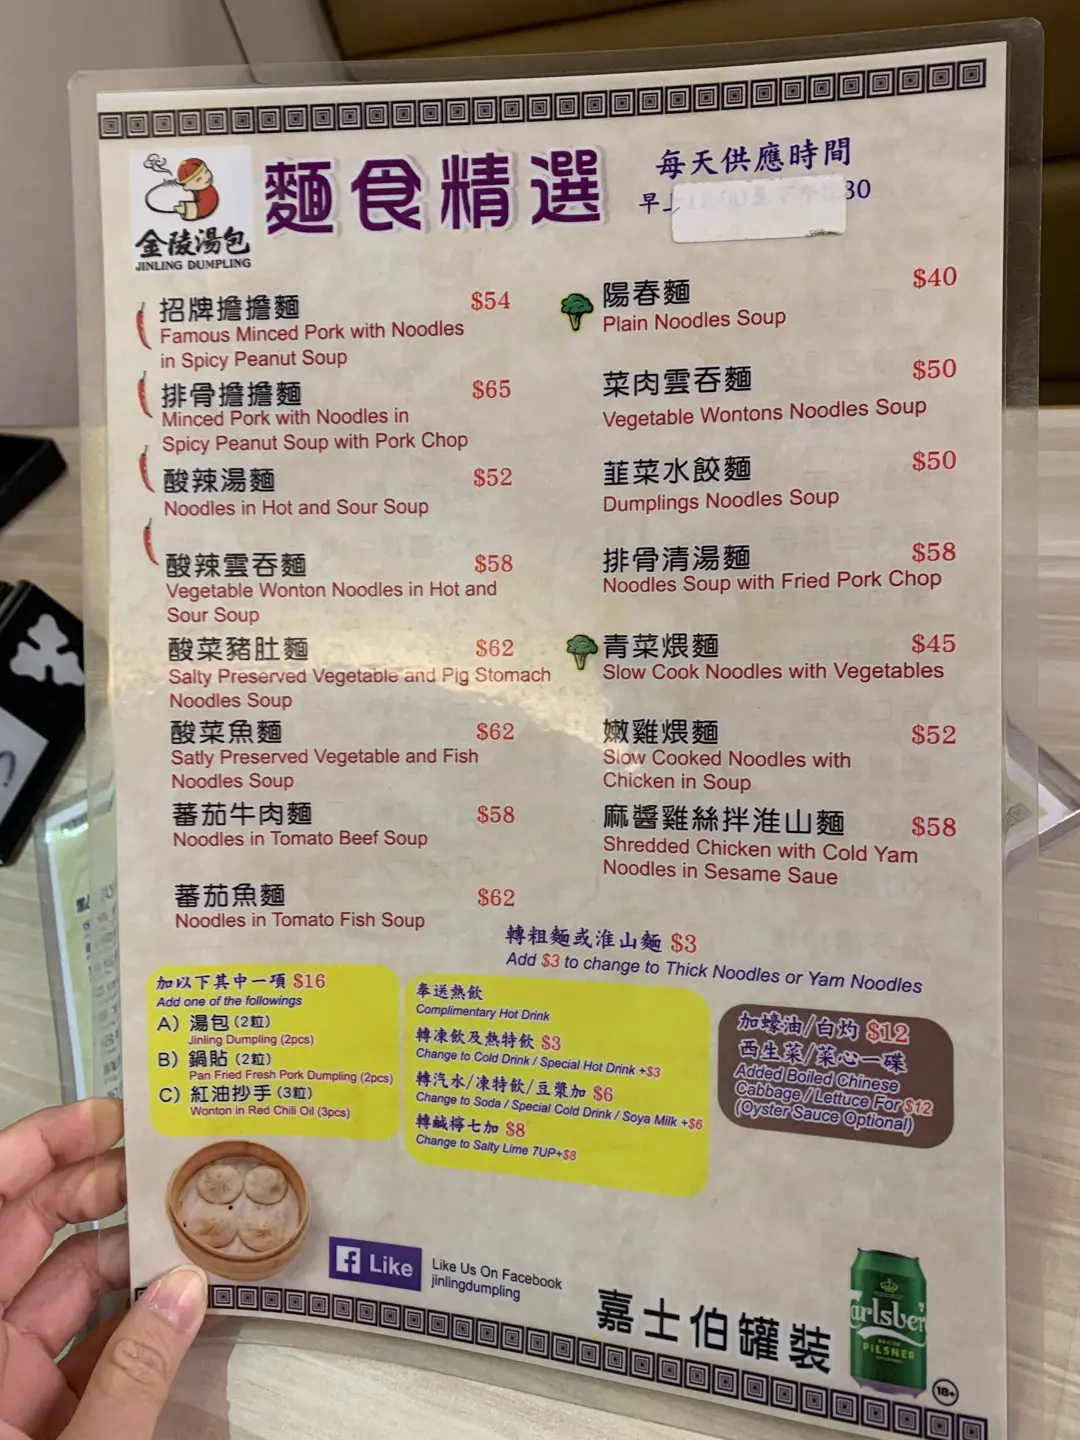 金陵湯包
JINLING DUMPLING
麵食精選
每天供應時間
早上
30
招牌擔擔麵 $54
Famous Minced Pork with Noodles
in Spicy Peanut Soup
排骨擔擔麵 $65
Minced Pork with Noodles in
Spicy Peanut Soup with Pork Chop
酸辣湯麵 $52
Noodles in Hot and Sour Soup
酸辣雲吞麵 $58
Vegetable Wonton Noodles in Hot and
Sour Soup
酸菜豬肚麵 $62
Salty Preserved Vegetable and Pig Stomach
Noodles Soup
酸菜魚麵 $62
Satly Preserved Vegetable and Fish
Noodles Soup
蕃茄牛肉麵 $58
Noodles in Tomato Beef Soup
蕃茄魚麵 $62
Noodles in Tomato Fish Soup
陽春麵 $40
Plain Noodles Soup
菜肉雲吞麵 $50
Vegetable Wontons Noodles Soup
韮菜水餃麵 $50
Dumplings Noodles Soup
排骨清湯麵 $58
Noodles Soup with Fried Pork Chop
青菜煨麵 $45
Slow Cook Noodles with Vegetables
嫩雞煨麵 $52
Slow Cooked Noodles with
Chicken in Soup
麻醬雞絲拌淮山麵 $58
Shredded Chicken with Cold Yam
Noodles in Sesame Saue
轉粗麵或淮山麵 $3
Add $3 to change to Thick Noodles or Yam Noodles
加以下其中一項 $16
Add one of the followings
A) 湯包(2粒)
Jinling Dumpling (2pcs)
B) 鍋貼(2粒)
Pan Fried Fresh Pork Dumpling (2pcs)
C) 紅油抄手(3粒)
Wonton in Red Chili Oil (3pcs)
奉送熱飲
Complimentary Hot Drink
轉凍飲及熱特飲 $3
Change to Cold Drink / Special Hot Drink +$3
轉汽水/凍特飲/豆漿加 $6
Change to Soda / Special Cold Drink / Soya Milk +$6
轉鹹檸七加 $8
Change to Salty Lime 7UP+$8
加蠔油/白灼 $12
西生菜/菜心一碟
Added Boiled Chinese
Cabbage / Lettuce For $12
(Oyster Sauce Optional)
f Like
Like Us On Facebook
jinlingdumpling
嘉士伯罐裝
Carlsber
PILSNER
18+